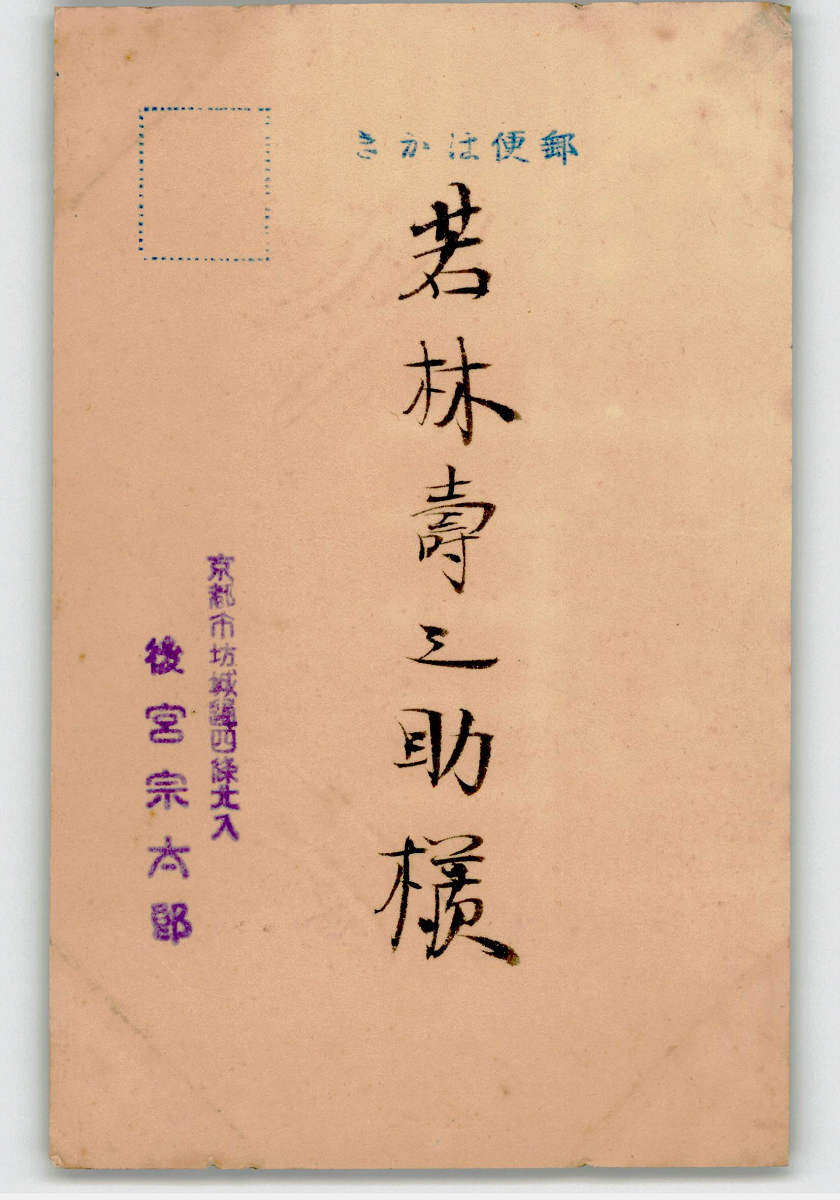 郵便はかき
若林壽之助様
京都市坊城通四條北入
後宮宗太郎